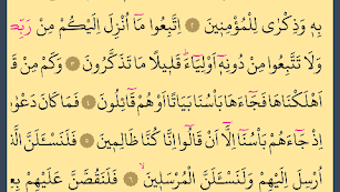 بِهٖ وَذِكْرٰى لِلْمُؤْمِنٖينَ ﴿٢﴾ اِتَّبِعُوا مَٓا اُنْزِلَ اِلَيْكُمْ مِنْ رَبِّكُمْ
وَلَا تَتَّبِعُوا مِنْ دُونِهٖٓ اَوْلِيَٓاءَ قَلٖيلًا مَا تَذَكَّرُونَ ﴿٣﴾ وَكَمْ مِنْ قَ
اَهْلَكْنَاهَا فَجَٓاءَهَا بَأْسُنَا بَيَاتًا اَوْ هُمْ قَٓائِلُونَ ﴿٤﴾ فَمَا كَانَ دَعْوٰ
اِذْ جَٓاءَهُمْ بَأْسُنَٓا اِلَّٓا اَنْ قَالُٓوا اِنَّا كُنَّا ظَالِمٖينَ ﴿٥﴾ فَلَنَسْـَٔلَنَّ الَّ
اُرْسِلَ اِلَيْهِمْ وَلَنَسْـَٔلَنَّ الْمُرْسَلٖينَ ﴿٦﴾ فَلَنَقُصَّنَّ عَلَيْهِمْ بِعِ